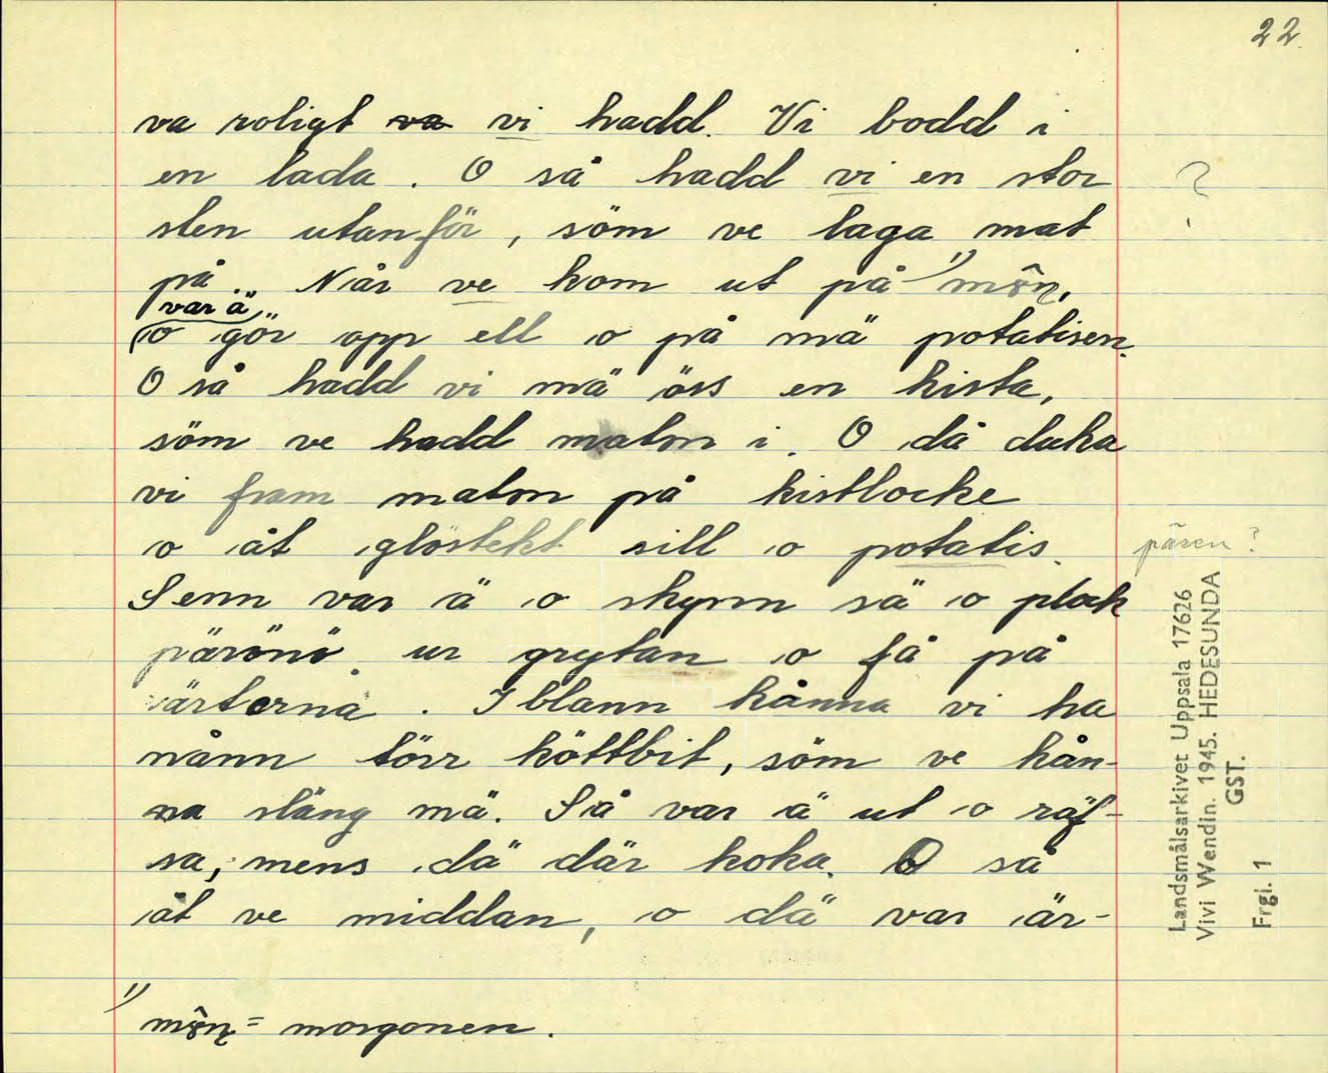 22.
va roligt va vi hadd. Vi bodd i
en lada. O så hadd vi en stor
sten utanför, söm ve laga mat
på. När ve kom ut på 1)
var ä
o gör opp ell o på mä potatisen.
O så hadd vi mä öss en kista,
söm ve hadd maton i. O då duka
vi fram maton på kistlocke
o åt glöstekt sill o potatis.
pären?
Senn var ä o skynn sä o plock
päronö ur grytan o få på
ärterna. Iblann kånna vi ha
nånn törr köttbit, söm ve kån-
na släng mä. Så var ä ut o räf-
sa, mens dä där koka. O så
åt ve middan, o dä var är-
1)
= morgonen.
?
Landsmålsarkivet Uppsala 17626
Vivi Wendin. 1945. HEDESUNDA
GST.
Frgl. 1